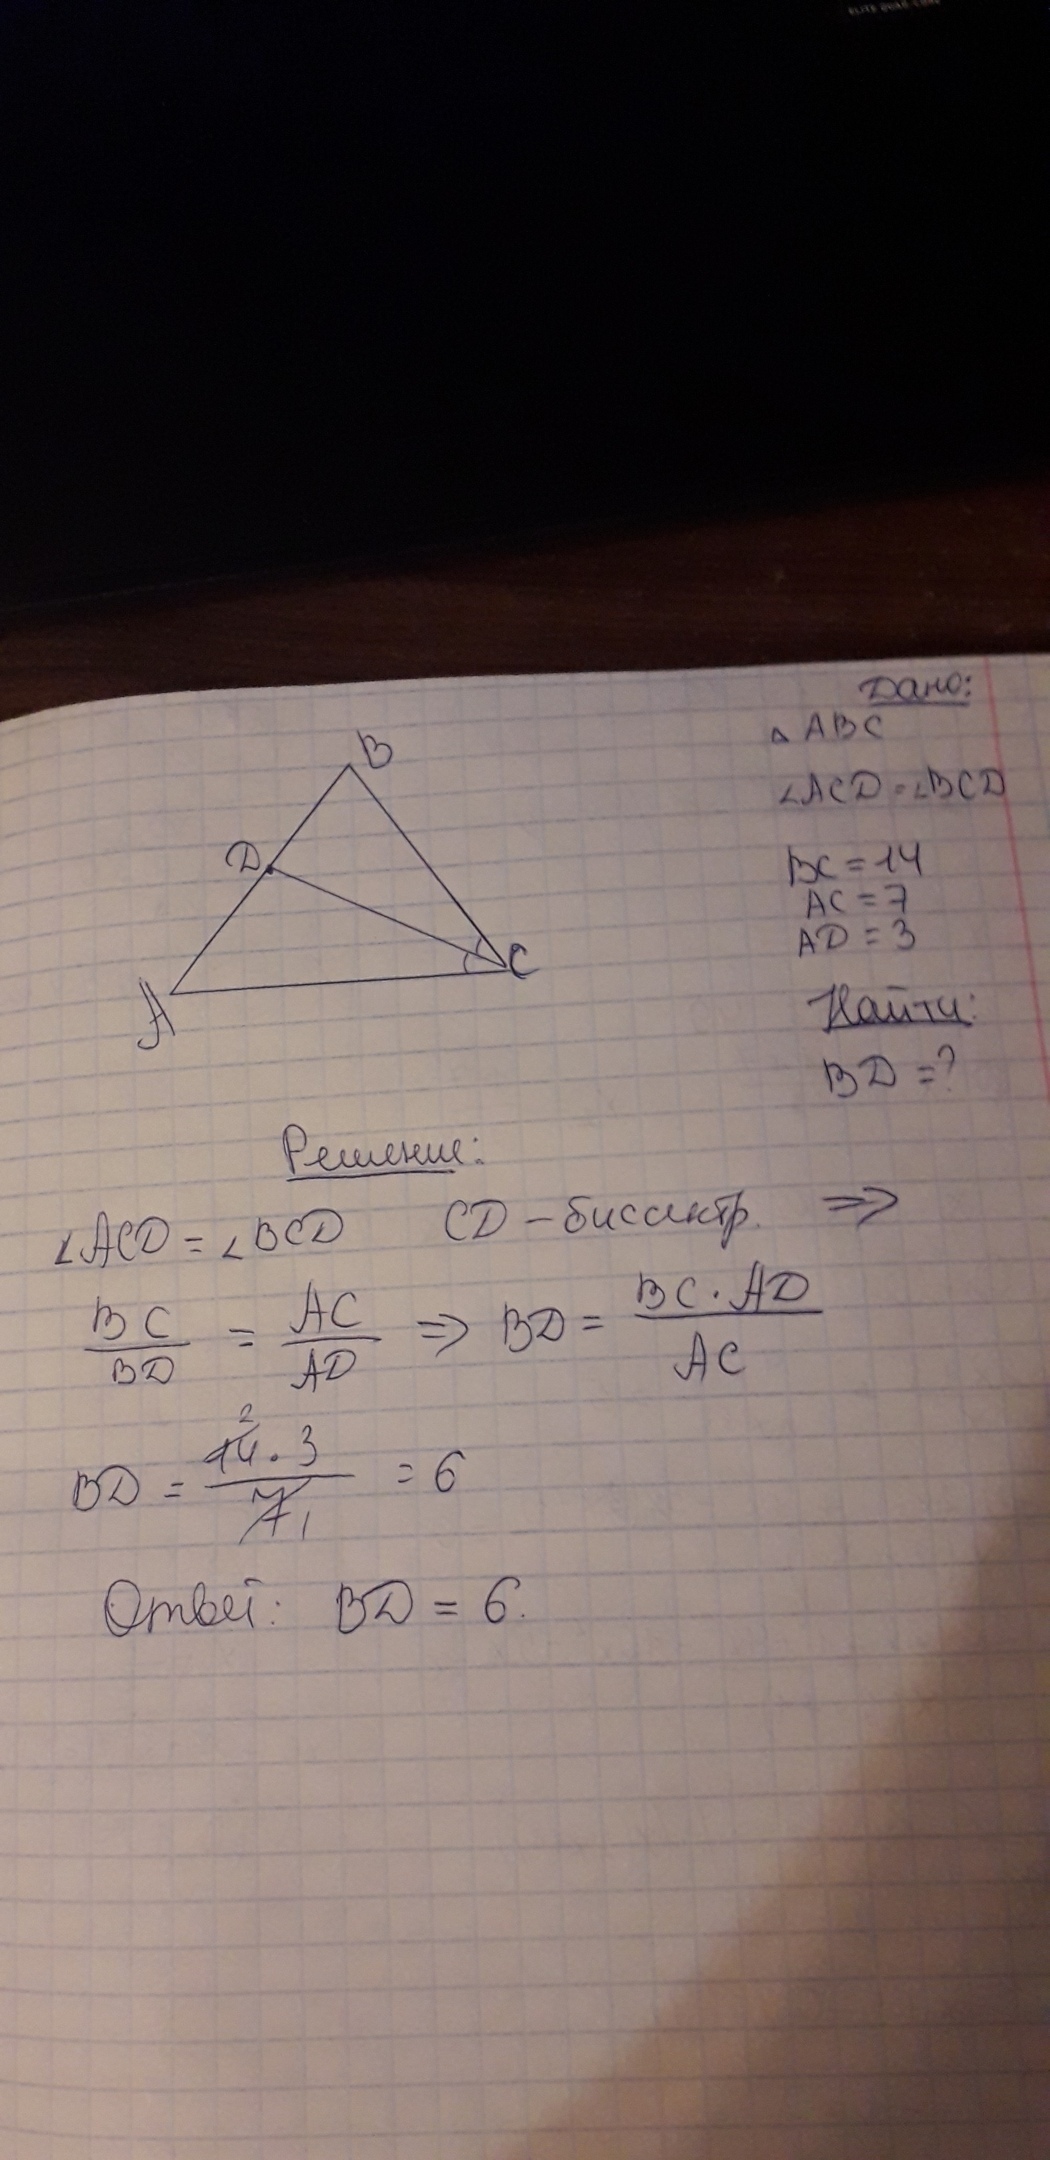 ELITE QUAD-CORE
Дано:
△ ABC
∠ACD = ∠BCD
BC = 14
AC = 7
AD = 3
Найти:
BD = ?
B
D
C
A
Решение:
∠ACD = ∠BCD CD – биссектр. ⇒
BC/BD = AC/AD ⇒ BD = BC · AD/AC
BD = 14 2 · 3/7 1 = 6
Ответ: BD = 6.